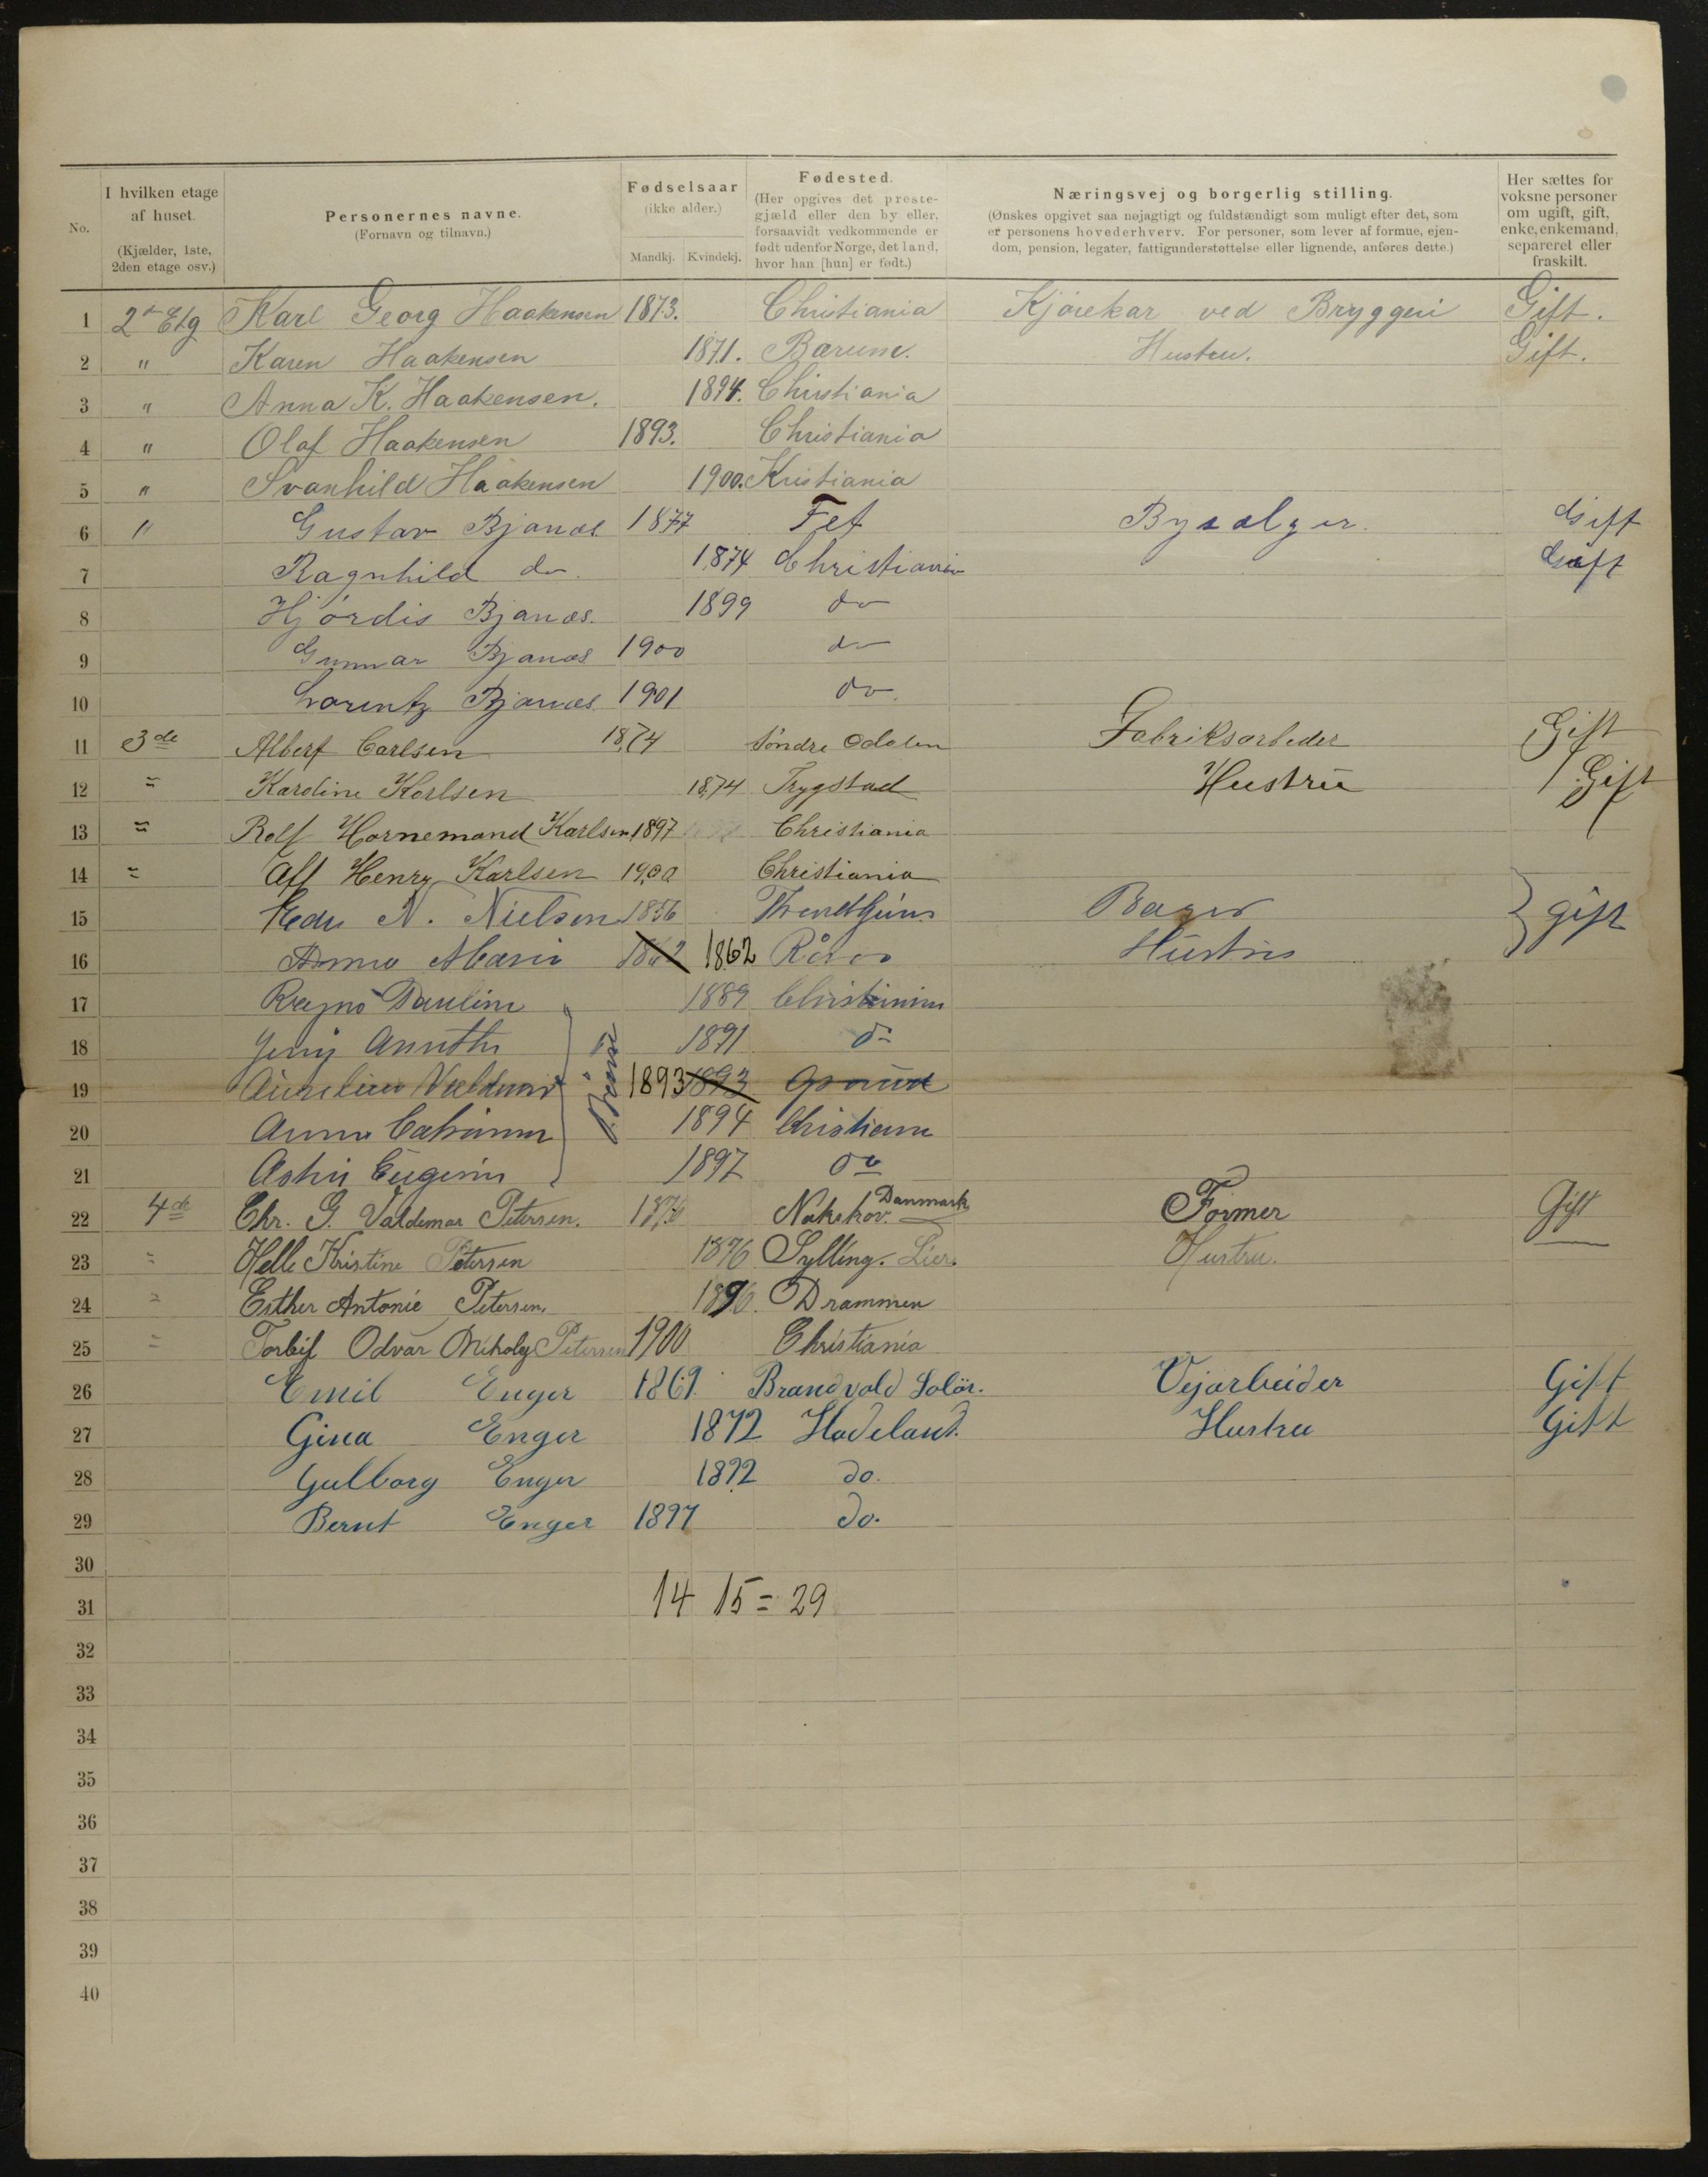 No.
I hvilken etage af huset. (Kjælder, 1ste, 2den etage osv.)
Personernes navne. (Fornavn og tilnavn.)
Fødselsaar (ikke alder.) Mandkj. Kvindekj.
Fødested. (Her opgives det prestegjæld eller den by eller, forsaavidt vedkommende er født udenfor Norge, det land, hvor han [hun] er født.)
Næringsvej og borgerlig stilling. (Ønskes opgivet saa nøjagtigt og fuldstændigt som muligt efter det, som er personens hovederhverv. For personer, som lever af formue, ejendom, pension, legater, fattigunderstøttelse eller lignende, anføres dette.)
Her sættes for voksne personer om ugift, gift, enke, enkemand, separeret eller fraskilt.
1 2d Etg Karl Georg Haakensen 1873. Christiania Kjørekar ved Bryggeri Gift.
2 " Karen Haakensen 1871. Bærum. Hustru. Gift.
3 " Anna K. Haakensen. 1894. Christiania
4 " Olaf Haakensen 1893. Christiania
5 " Svanhild Haakensen 1900. Kristiania
6 " Gustav Bjanæs 1877 Fet Bysælger. Gift
7 Ragnhild do. 1874 Christiania Gift
8 Hjördis Bjanæs. 1899 do
9 Gunnar Bjanæs 1900 do
10 Lorentz Bjanæs 1901 do.
11 3de Albert Carlsen 1874 Söndre Odalen Fabriksarbeder Gift
12 " Karoline Karlsen 1874 Trygstad Hustru Gift
13 " Rolf Hornemand Karlsen 1897 Christiania
14 " Alf Henry Karlsen 1900 Christiania
15 N. Nielsen 1856 Trondhjem Bager gift
16 Anna Maria 1862 1862 Röros Hustru
17 Ragna Pauline 1889 Christiania
18 Jeny 1891 do
19 1893 1893
20 Anna 1894 Christiania
21 Eugenie 1897 do
22 4de Chr. G. Valdemar Petersen. Nakskov. Danmark Former Gift
23 " Helle Kristine Petersen 1876 Sylling. Lier. Hustru.
24 " Esther Antonie Petersen. 1896. Drammen
25 " Odvar Petersen 1900 Christiania
26 Emil Enger 1869. Brandvold Solör. Vejarbeider Gift
27 Gina Enger 1872 Hadeland. Hustru Gift
28 Gulborg Enger 1892 do.
29 Bernt Enger 1897 do.
30
31 14 15 = 29
32
33
34
35
36
37
38
39
40